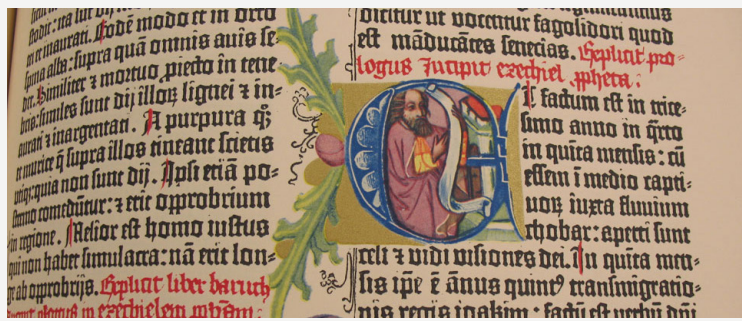 fodit: ita sut dij
in et maurati. Eodē modo et in orto
spina alba: supra quā omnis auis se-
det. Similiter ⁊ mortuo proiecto in tene
bris: similes sunt dij illoꝝ lignei ⁊ in-
aurati ⁊ inargentati. A purpura qꝫ
et murice q̄ supra illos tineant scietis
itaqꝫ: quia non sunt dij. Ipsi etiā po-
stremo comedūtur: ⁊ erit opprobrium
in regione. Melior est homo iustus
qui non habet simulacra: nā erit lon-
ge ab opprobrijs. Explicit liber baruch
in ezechielem
dicitur ut vocentur fagolidori quod
est māducātes senecias. Explicit pro-
logus Incipit ezechiel ꝓpheta.
Et factum est in trice-
simo anno in q̄rto
in quīta mensis: cū
essem ī medio capti-
uoꝝ iuxta fluuium
chobar: aperti sunt
celi ⁊ vidi visiones dei. In quīta men-
sis ipē ē ānus quintꝰ transmigratio-
nis regis ioakim: factū est verbū dn̄i